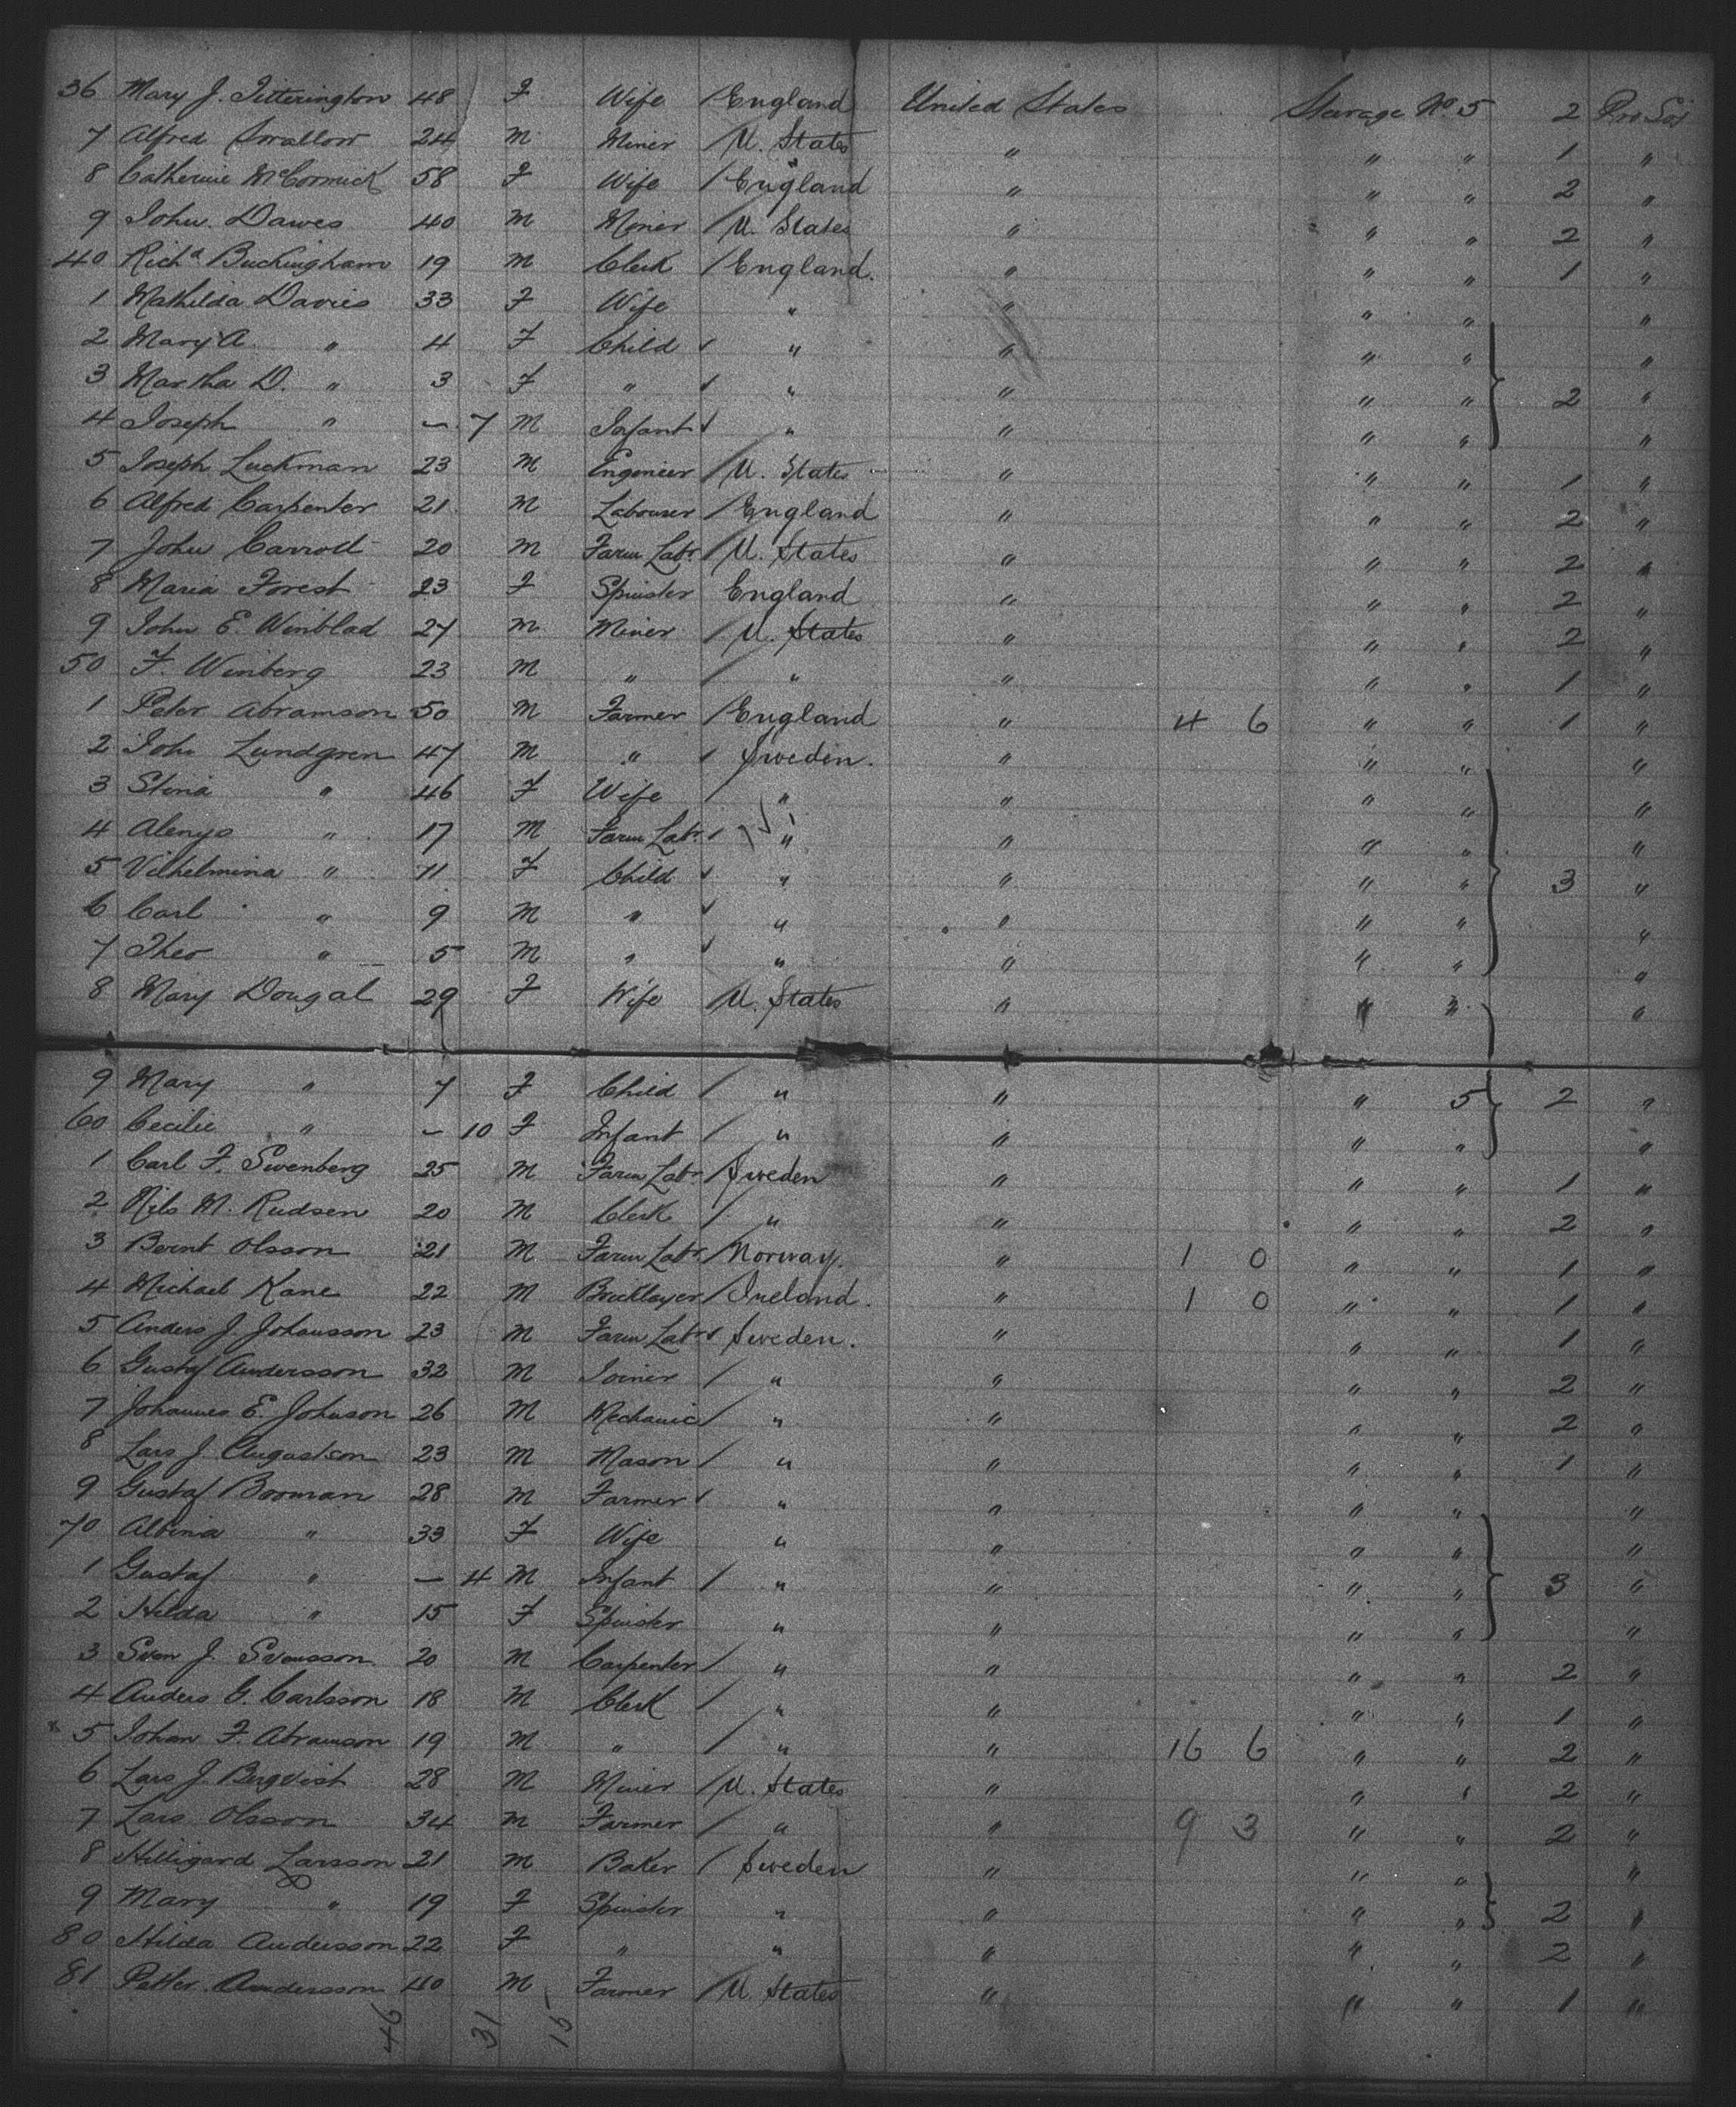 36 Mary J. Titterington 48 F Wife / England United States Steerage No. 5 2 Pro Soj
7 Alfred Swallow 24 M Miner / U. States " " " 1 "
8 Catherine McCormick 58 F Wife / England " " " 2 "
9 John Dawes 40 M Miner / U. States " " " 2 "
40 Richd Buckingham 19 M Clerk / England. " " " 1 "
1 Mathilda Davies 33 F Wife " " " " "
2 Mary A. " 4 F Child " " " " "
3 Martha D. " 3 F " " " " " 2 "
4 Joseph " – 7 M Infant " " " " "
5 Joseph Luckman 23 M Engineer / U. States " " " 1 "
6 Alfred Carpenter 21 M Labourer / England " " " 2 "
7 John Carroll 20 M Farm Labr. / U. States " " " 2 "
8 Maria Forest 23 F Spinster England " " " 2 "
9 John E. Winblad 27 M Miner / U. States " " " 2 "
50 F. Winberg 23 M " / " " " " 1 "
1 Peter Abramson 50 M Farmer / England " 4 6 " " 1 "
2 Joh. Lundgren 47 M " Sweden. " " " "
3 Stina " 46 F Wife / " " " " "
4 " 17 M Farm Labr. / " " " " "
5 Vilhelmina " 11 F Child " " " " 3 "
6 Carl " 9 M " " " " " "
7 Theo " 5 M " " " " " "
8 Mary Dougal 29 F Wife / U. States " " " "
9 Mary " 7 F Child / " " " 5 2 "
60 Cecilie " – 10 F Infant / " " " " "
1 Carl F. Swenberg 25 M Farm Labr. / Sweden " " " 1 "
2 Nils M. Rudsen 20 M Clerk / " " " " 2 "
3 Bernt Olsson 21 M Farm Labr. / Norway. " 1 0 " " 1 "
4 Michael Kane 22 M Bricklayer / Ireland. " 1 0 " " 1 "
5 Anders J. Johansson 23 M Farm Labr. Sweden. " " " 1 "
6 Gustaf Andersson 32 M Joiner / " " " " 2 "
7 Johannes E. Johnson 26 M Mechanic / " " " " 2 "
8 Lars J. Augustson 23 M Mason / " " " " 1 "
9 Gustaf Booman 28 M Farmer " " " "
70 Albina " 33 F Wife " " " " "
1 Gustaf " – 4 M Infant / " " " " 3 "
2 Hilda " 15 F Spinster " " " " "
3 Sven J. Svensson 20 M Carpenter / " " " " 2 "
4 Anders G. Carlsson 18 M Clerk / " " " " 1 "
x 5 Johan F. Abramson 19 M " / " " 16 6 " " 2 "
6 Lars J. Bergvist 28 M Miner / U. States " " " 2 "
7 Lars Olsson 34 M Farmer / " " 9 3 " " 2 "
8 Hilligard Larsson 21 M Baker / Sweden " " " "
9 Mary " 19 F Spinster " " " " 2 "
80 Hilda Andersson 22 F " " " " " 2 "
81 Petter Andersson 40 M Farmer / U. States " " " 1 "
46 31 15